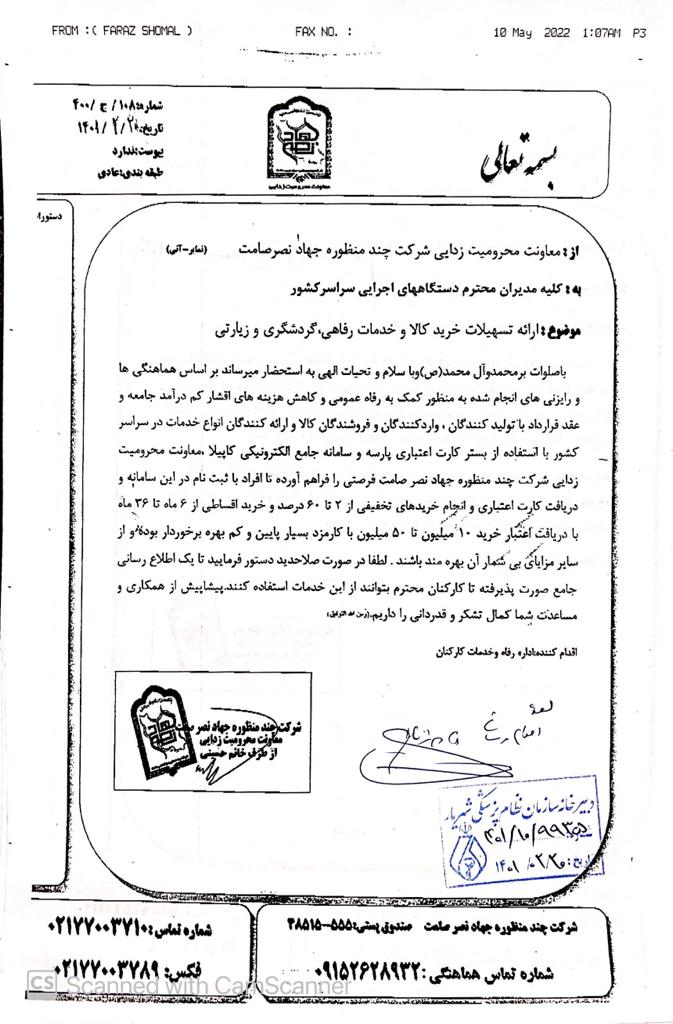 FROM :( FARAZ SHOMAL )          FAX NO. :          10 May  2022  1:07AM  P3
شماره:۱۰۸/ ج /۴۰۰
تاریخ:۱۴۰۱/۲/۲۰
پیوست:ندارد
طبقه بندی:عادی
معاونت محرومیت زدایی
بسمه تعالی
دستورا
از: معاونت محرومیت زدایی شرکت چند منظوره جهاد نصر صامت (نمابر-آنی)
به: کلیه مدیران محترم دستگاههای اجرایی سراسر کشور
موضوع: ارائه تسهیلات خرید کالا و خدمات رفاهی،گردشگری و زیارتی
باصلوات برمحمدوآل محمد(ص)وبا سلام و تحیات الهی به استحضار میرساند بر اساس هماهنگی ها
و رایزنی های انجام شده به منظور کمک به رفاه عمومی و کاهش هزینه های اقشار کم درآمد جامعه و
عقد قرارداد با تولید کنندگان ، واردکنندگان و فروشندگان کالا و ارائه کنندگان انواع خدمات در سراسر
کشور با استفاده از بستر کارت اعتباری پارسه و سامانه جامع الکترونیکی کاپیلا ،معاونت محرومیت
زدایی شرکت چند منظوره جهاد نصر صامت فرصتی را فراهم آورده تا افراد با ثبت نام در این سامانه و
دریافت کارت اعتباری و انجام خریدهای تخفیفی از ۲ تا ۶۰ درصد و خرید اقساطی از ۶ ماه تا ۳۶ ماه
با دریافت اعتبار خرید ۱۰ میلیون تا ۵۰ میلیون با کارمزد بسیار پایین و کم بهره برخوردار بوده و از
سایر مزایای بی شمار آن بهره مند باشند . لطفا در صورت صلاحدید دستور فرمایید تا یک اطلاع رسانی
جامع صورت پذیرفته تا کارکنان محترم بتوانند از این خدمات استفاده کنند.پیشاپیش از همکاری و
مساعدت شما کمال تشکر و قدردانی را داریم.(ومن الله التوفیق)
اقدام کننده:اداره رفاه وخدمات کارکنان
شرکت چند منظوره جهاد نصر صامت
معاونت محرومیت زدایی
از طرف خانم حسینی
دبیرخانه سازمان نظام پزشکی شهریار
تاریخ: ۱۴۰۱/۰۲/۲۰
شرکت چند منظوره جهاد نصر صامت   صندوق پستی:۵۵۵-۳۸۵۱۵
شماره تماس هماهنگی :۰۹۱۵۲۶۲۸۹۳۲
شماره تماس :۰۲۱۷۷۰۰۳۷۱۰
فکس: ۰۲۱۷۷۰۰۳۷۸۹
CS Scanned with CamScanner